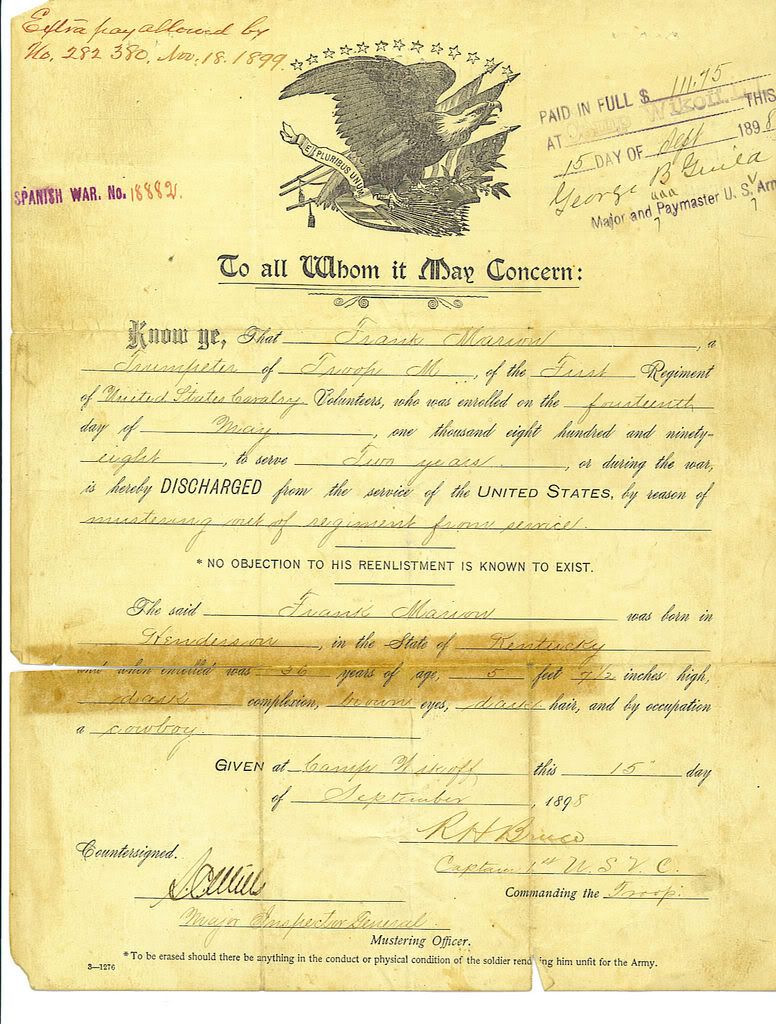 Extra pay allowed by
No. 282 380, Nov. 18. 1899.
PAID IN FULL $ 111.75
AT Camp Wikoff, L.I. THIS
15 DAY OF Sept 1898
George B Guild
Major and Paymaster U. S. Army
SPANISH WAR. No. 18882.
E PLURIBUS UNUM
To all Whom it May Concern:
Know ye, That Frank Marion, a
Trumpeter of Troop M, of the First Regiment
of United States Cavalry Volunteers, who was enrolled on the fourteenth
day of May, one thousand eight hundred and ninety-
eight, to serve Two years, or during the war,
is hereby DISCHARGED from the service of the UNITED STATES, by reason of
mustering out of regiment from service.
* NO OBJECTION TO HIS REENLISTMENT IS KNOWN TO EXIST.
The said Frank Marion was born in
Henderson, in the State of Kentucky
and when enrolled was 36 years of age, 5 feet 7 1/2 inches high,
dark complexion, brown eyes, dark hair, and by occupation
a cowboy.
GIVEN at Camp Wikoff this 15" day
of September, 1898
R H Bruce
Captain 1st U. S. V. C.
Commanding the Troop.
Countersigned.
Major Inspector General
Mustering Officer.
* To be erased should there be anything in the conduct or physical condition of the soldier rendering him unfit for the Army.
3—1276